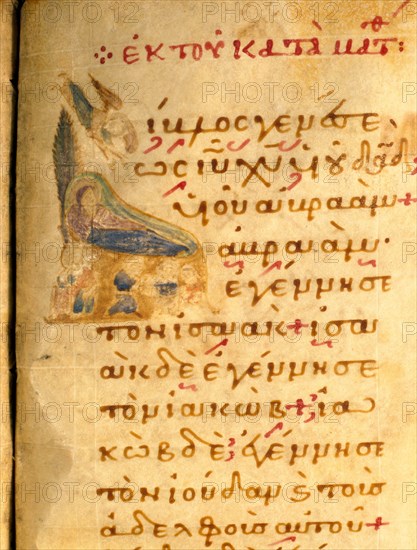 ἐκ τοῦ κατὰ ματθ:
ίβλος γενέσε
ως ιυ χυ υἱοῦ δαδ
υἱοῦ ἀβραάμ+
ἀβραὰμ·
ἐγέννησε
τὸν ἰσαὰκ+ ἰσα
ὰκ δὲ ἐγέννησε
τὸν ἰακὼβ+ ἰα
κὼβ δὲ ἐγέννησε
τὸν ἰούδαν ϗ τοὺς
ἀδελφοὺς αὐτοῦ+